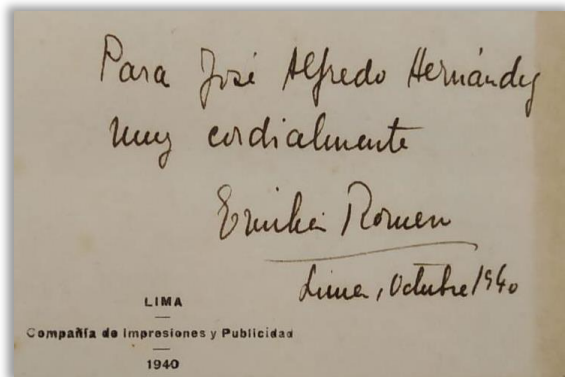 Para José Alfredo Hernández
muy cordialmente
Emilia Romero
Lima, Octubre 1940
LIMA
Compañía de Impresiones y Publicidad
1940